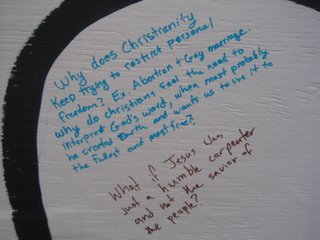 Why does Christianity
Keep trying to restrict personal
freedom? Ex. Abortion + Gay marriage.
why do christians feel the need to
interpret God's word, when most probably
he created Earth and wants us to live it to
the fullest and most free?
What if Jesus was
just a humble carpenter
and not the savior of
the people?